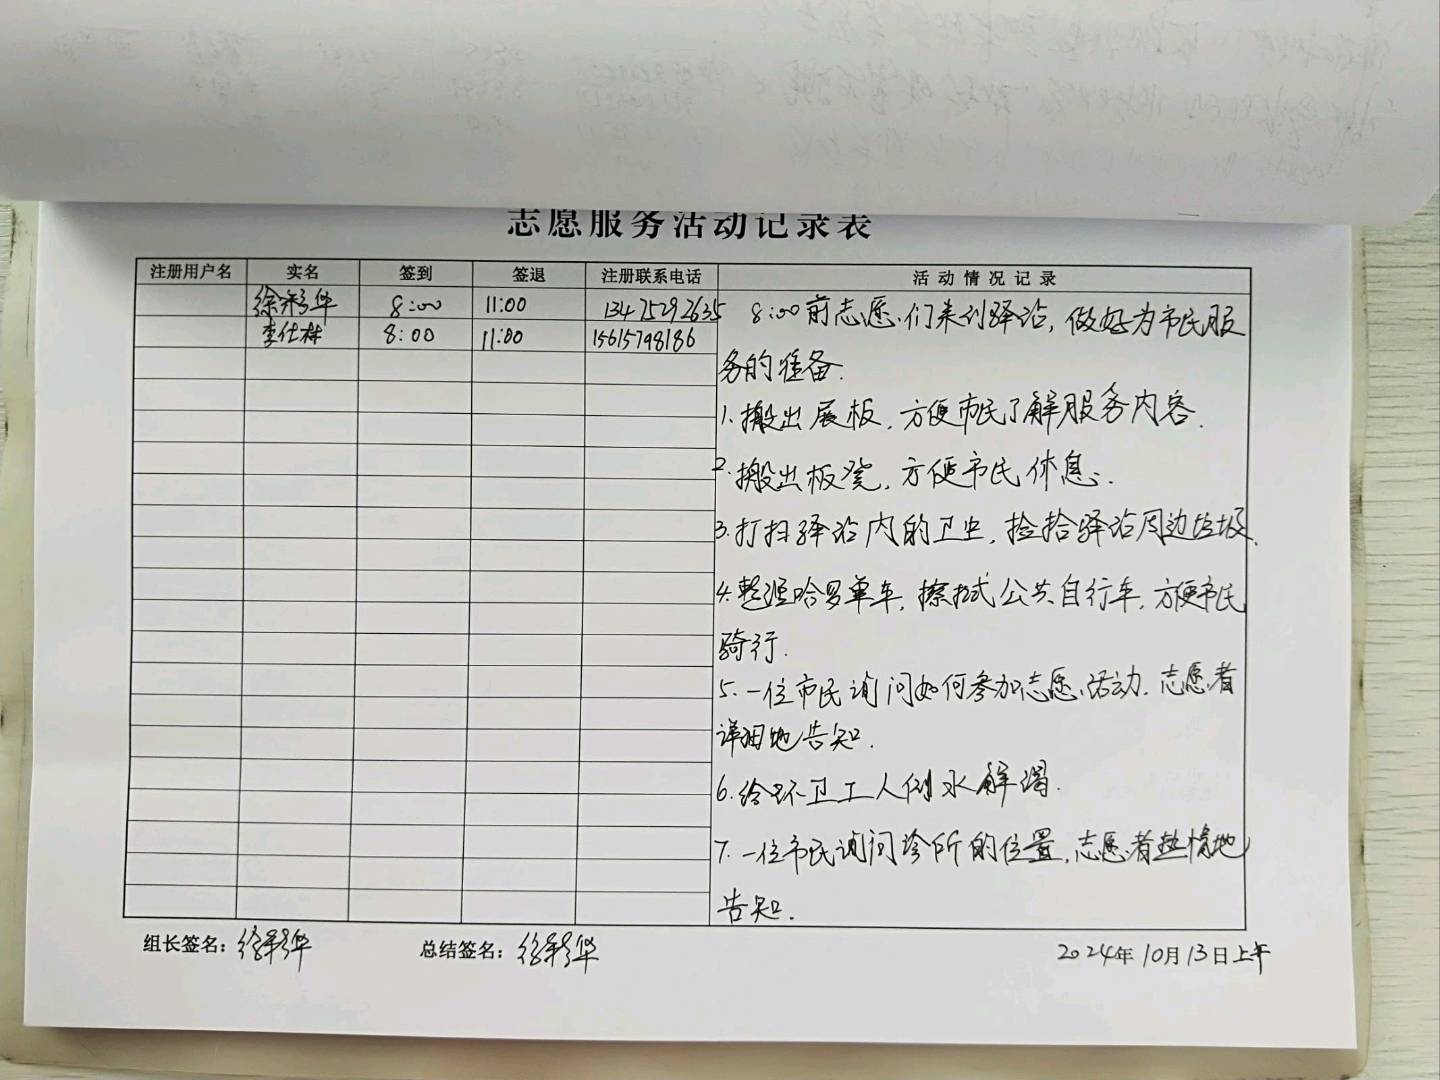 志愿服务活动记录表
注册用户名 实名 签到 签退 注册联系电话 活动情况记录
徐彩华 8:00 11:00 13475292635
李仕林 8:00 11:00 15615798186
8:00前志愿们来到驿站，做好为市民服
务的准备.
1.搬出展板，方便市民了解服务内容.
2.搬出板凳，方便市民休息.
3.打扫驿站内的卫生，捡拾驿站周边垃圾.
4.整理哈罗单车，擦拭公共自行车，方便市民
骑行.
5.一位市民询问如何参加志愿活动.志愿者
详细地告知.
6.给环卫工人倒水解渴.
7.一位市民询问诊所的位置，志愿者热情地
告知.
组长签名：徐彩华 总结签名：徐彩华 2024年10月13日上午